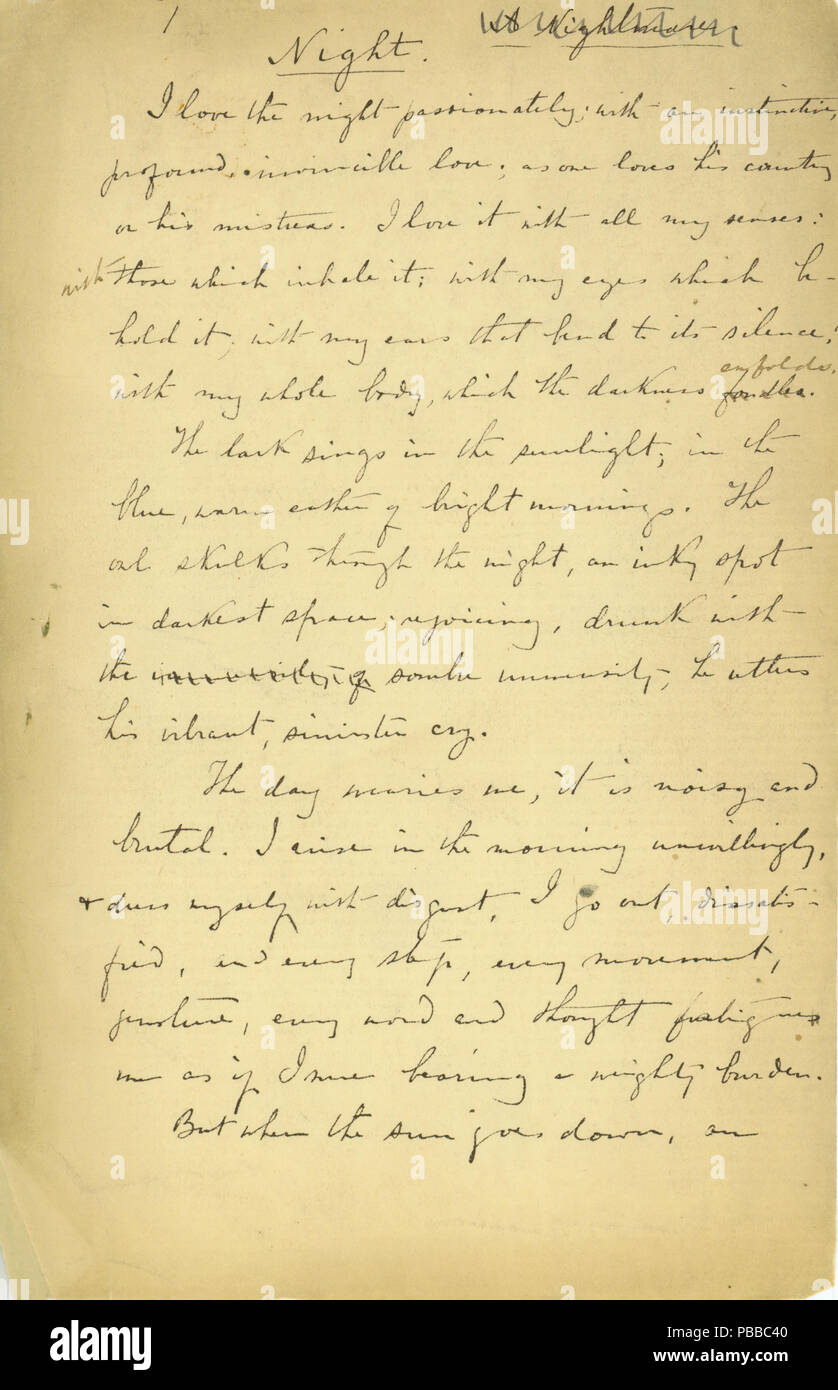 1
A Nightmare.
Night.
I love the night passionately; with an instinctive,
profound, invincible love; as one loves his country
or his mistress. I love it with all my senses:
with those which inhale it; with my eyes which be-
hold it; with my ears that bend to its silence;
enfolds.
with my whole body, which the darkness fondles.
The lark sings in the sunlight; in the
blue, warm ether of bright mornings. The
owl skulks through the night, an inky spot
in darkest space; rejoicing, drunk with
the immensity of sombre immensity, he utters
his vibrant, sinister cry.
The day wearies me, it is noisy and
brutal. I arise in the morning unwillingly,
+ dress myself with disgust, I go out, dissatis-
fied, and every step, every movement,
gesture, every word and thought fatigues
me as if I were bearing a weighty burden.
But when the sun goes down, an
a alamy
alamy stock photo
Image ID: PBBC40
www.alamy.com